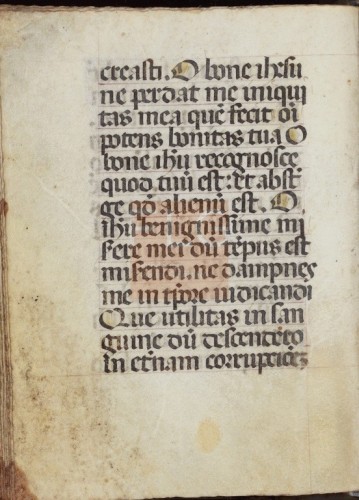 creasti. O bone ihesu
ne perdat me iniqui
tas mea quē fecit oī
potens bonitas tua O
bone ihū recognosce
quod tuū est: et abst
ge qd̄ alienū est. O
ihū benignissime mi
serere mei dū tēpus est
miserendi. ne dampnes
me in tp̄ore iudicandi
Que utilitas in san
guine dū descendero
in etn̄am corruptiōeȝ